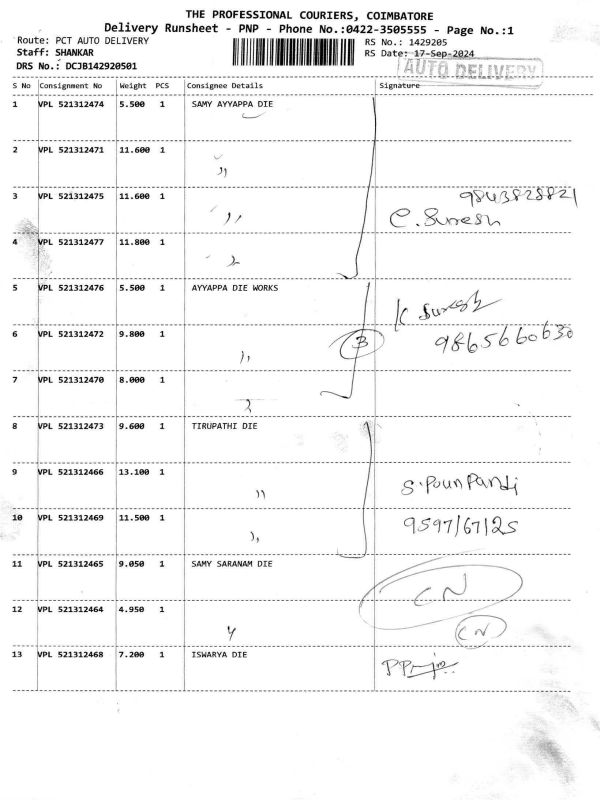 THE PROFESSIONAL COURIERS, COIMBATORE
Delivery Runsheet - PNP - Phone No.:0422-3505555 - Page No.:1
Route: PCT AUTO DELIVERY RS No.: 1429205
Staff: SHANKAR RS Date: 17-Sep-2024
DRS No.: DCJB142920501 AUTO DELIVERY
S No Consignment No Weight PCS Consignee Details Signature
1 VPL 521312474 5.500 1 SAMY AYYAPPA DIE
2 VPL 521312471 11.600 1 ,,
3 VPL 521312475 11.600 1 ,, 9843828821
C. Suresh
4 VPL 521312477 11.800 1
5 VPL 521312476 5.500 1 AYYAPPA DIE WORKS K Suresh
6 VPL 521312472 9.800 1 ,, 3 9865660630
7 VPL 521312470 8.000 1
8 VPL 521312473 9.600 1 TIRUPATHI DIE
9 VPL 521312466 13.100 1 ,, S. Poun Pandi
10 VPL 521312469 11.500 1 ,, 9597167125
11 VPL 521312465 9.050 1 SAMY SARANAM DIE CN
12 VPL 521312464 4.950 1 CN
13 VPL 521312468 7.200 1 ISWARYA DIE